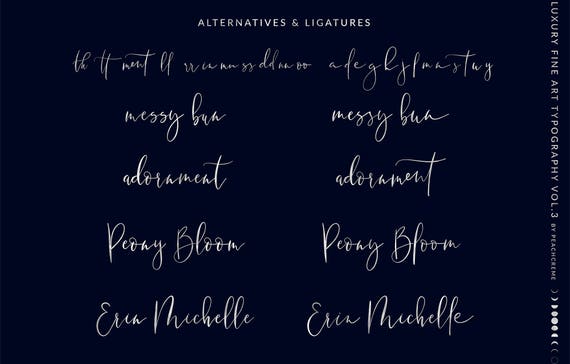 ALTERNATIVES & LIGATURES
th tt ment ll rr in nn ss dd nn oo a d e g h k j f l m n s t w y
messy bun messy bun
adornment adornment
Peony Bloom Peony Bloom
Erin Michelle Erin Michelle
LUXURY FINE ART TYPOGRAPHY VOL.3 BY PEACHCREME